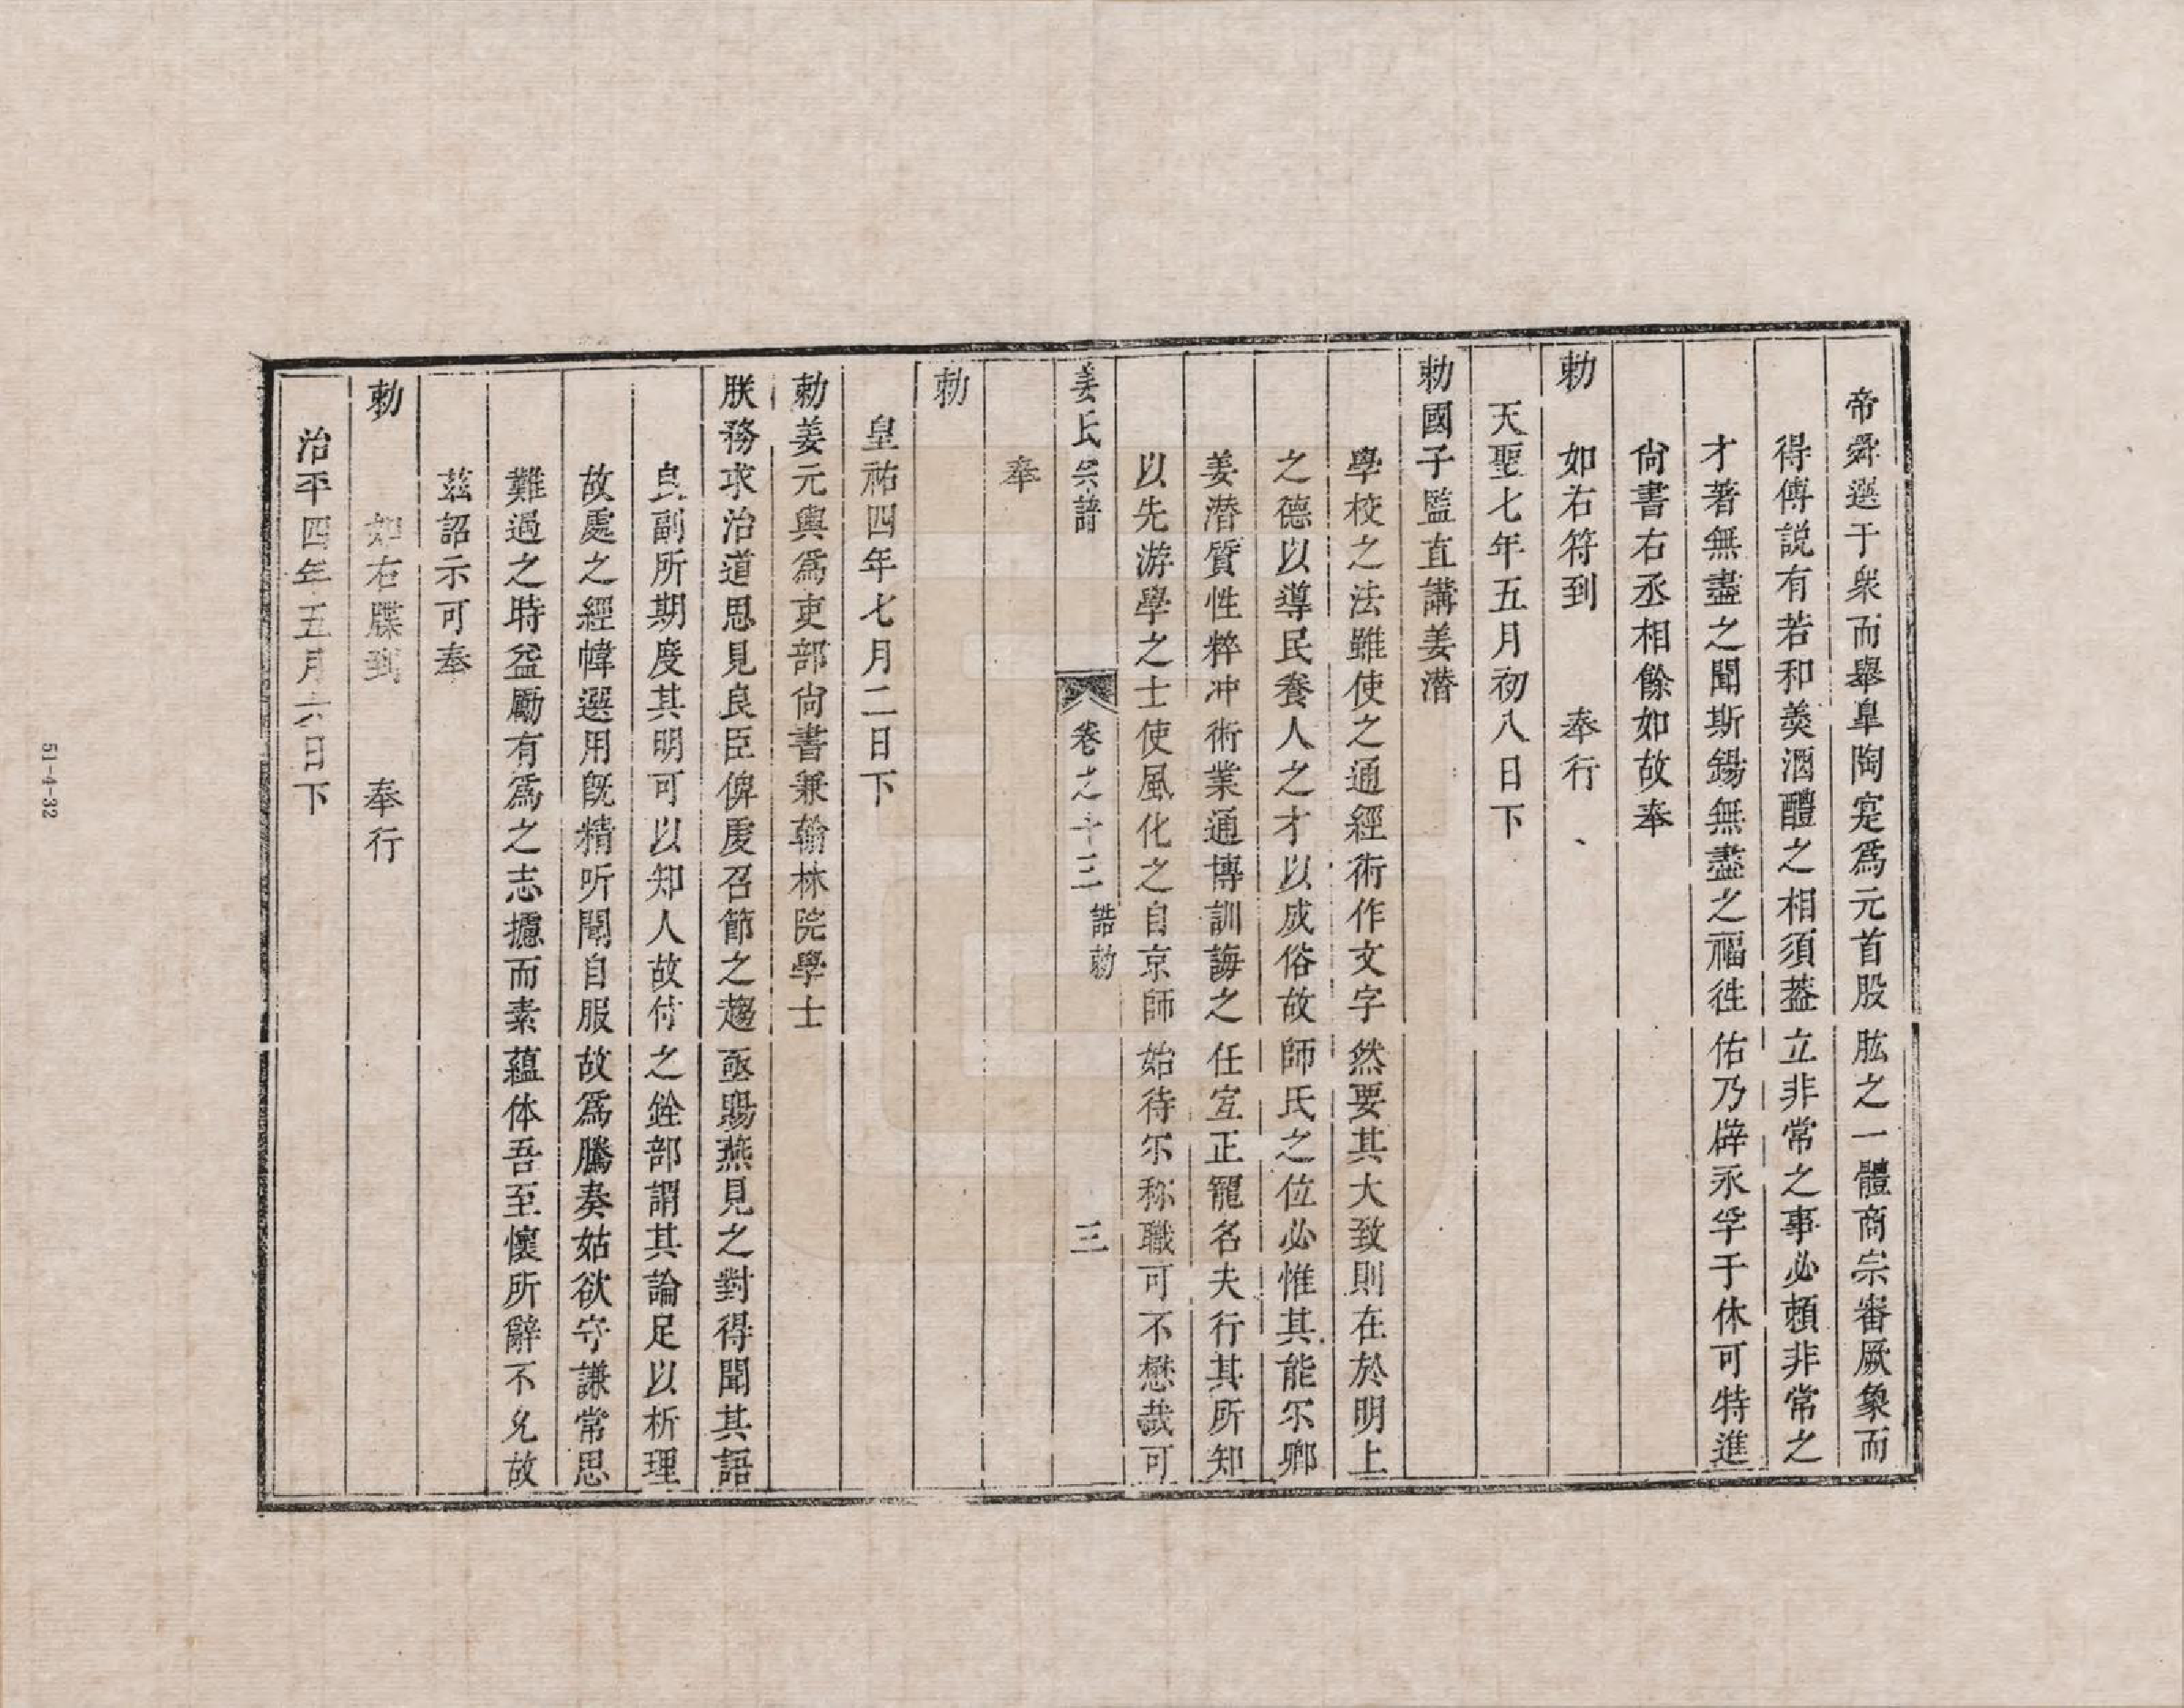 帝舜選于衆而舉臯陶寔爲元首股肱之一體商宗審厥象而
得傅説有若和羮酒醴之相須葢立非常之事必頼非常之
才著無盡之聞斯錫無盡之福徃佑乃辟永孚于休可特進
尙書右丞相餘如故奉
勅　如右符到　　奉行
天聖七年五月初八日下
勅國子監直講姜潜
學校之法雖使之通經術作文字然要其大致則在於明上
之德以導民養人之才以成俗故師氏之位必惟其能尔卿
姜潜質性粹冲術業通博訓誨之任宐正寵名夫行其所知
以先游學之士使風化之自京師始待尔称職可不懋哉可
姜氏宗譜　卷之十三　誥勅　三
奉
勅
皇祐四年七月二日下
勅姜元輿爲吏部尙書兼翰林院學士
朕務求治道思見良臣俾虔召節之趨亟賜燕見之對得聞其語
良副所期度其明可以知人故付之銓部謂其論足以析理
故處之經幃選用旣精听聞自服故爲騰奏姑欲守謙常思
難遇之時益勵有爲之志攄而素蘊体吾至懷所辭不允故
茲詔示可奉
勅　　如右牒到　　奉行
治平四年五月六日下
51-4-32